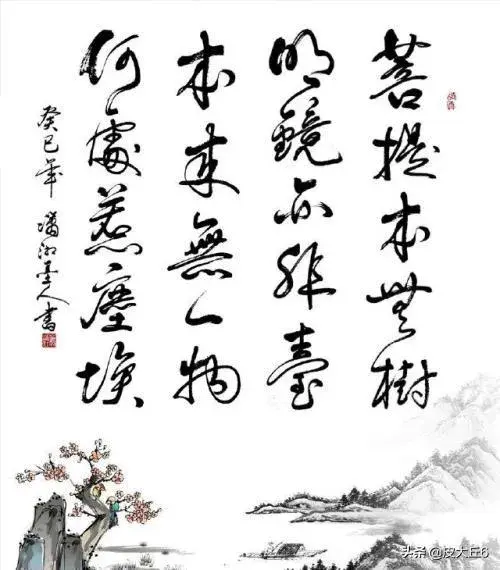 菩提本無樹
明鏡亦非臺
本来無一物
何處惹塵埃
癸巳年 湘墨人書
头条 @皮大丘6